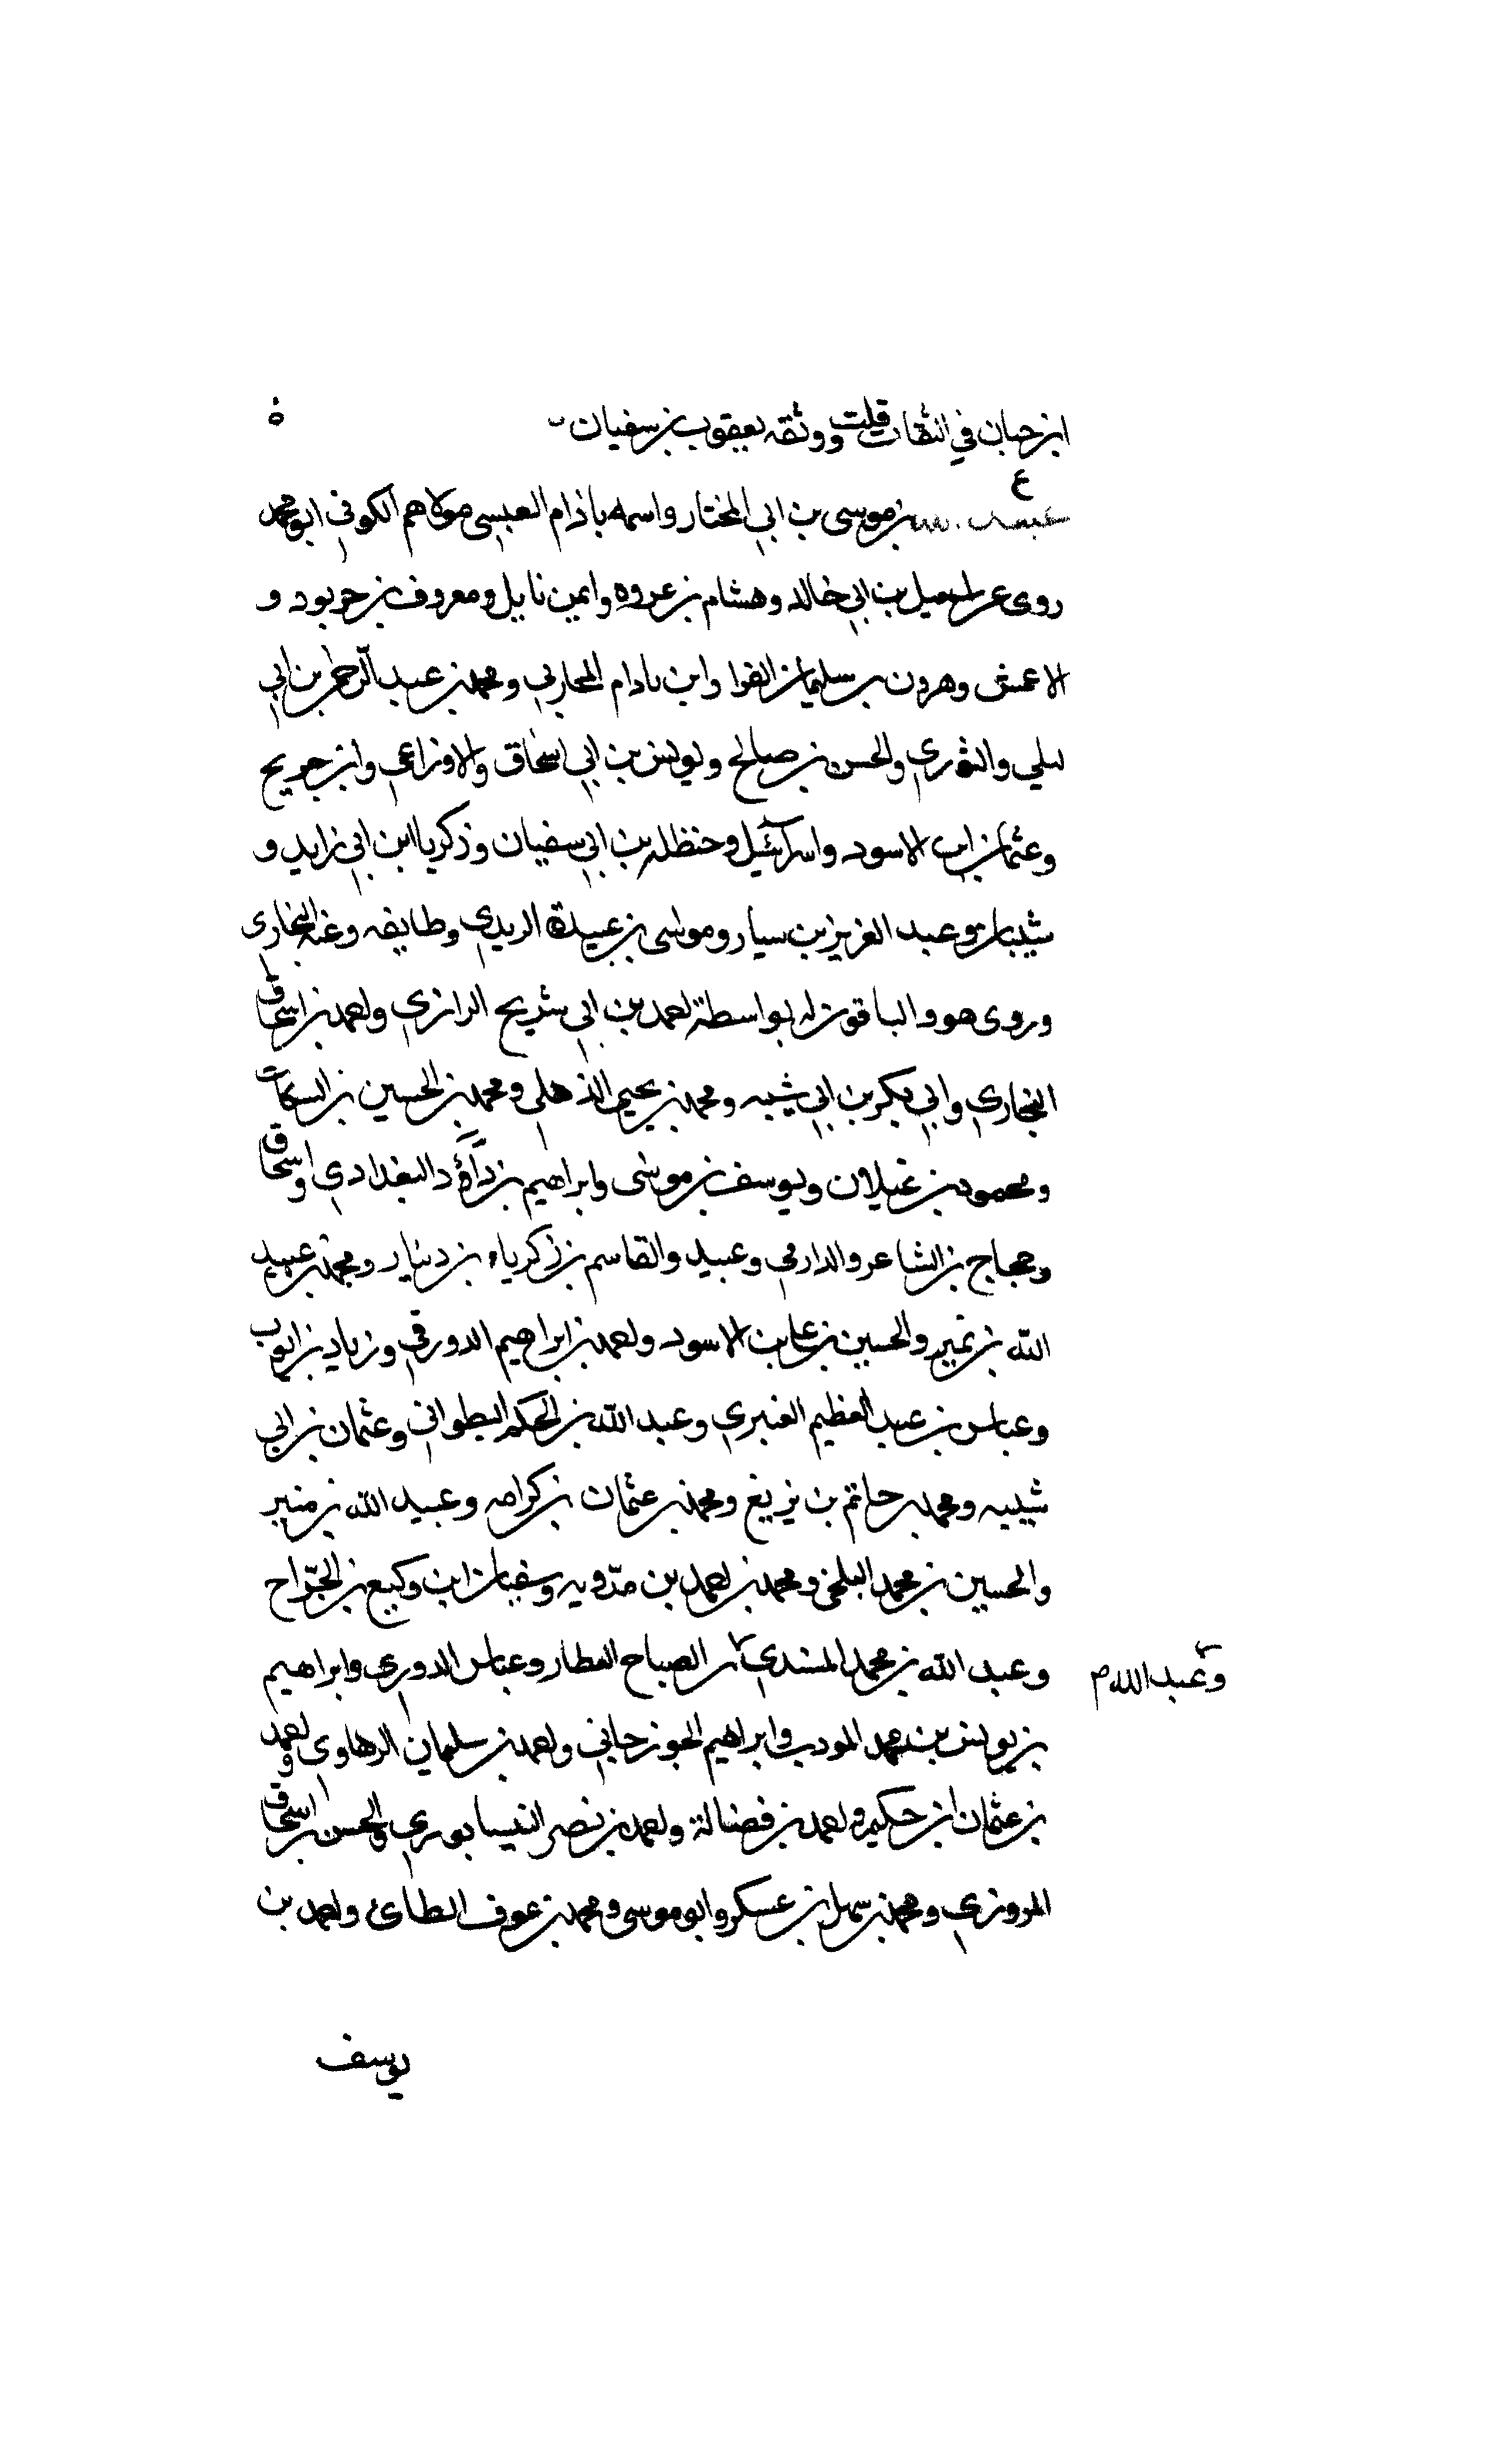 ابن حبان في الثقات قلت ووثقه يعقوب بن سفيان ه
ع
عبيد الله بن موسى بن ابي المختار واسمه باذام العبسي مولاهم الكوفي ابو محمد
روى عن اسمعيل بن ابي خالد وهشام بن عروه وايمن نابل ومعروف بن خربود و
الاعمش وهرون بن سليمان الفرا وابن بادام المحاربي ومحمد بن عبد الرحمن بن ابي
ليلي والثوري والحسن بن صالح ويونس بن ابي اسحاق والاوزاعي وابن جريج
وعثمان ابن الاسود واسرآئيل وحنظله بن ابي سفيان وذكريا ابن ابي زايد و
شيبان وعبد العزيز بن سيار وموسى بن عبيدة الربدي وطايفه وعنه البخارى
وروى هو والباقون له بواسطة احمد بن ابي شريح الرازي واحمد بن اسحاق
البخاري وابي بكر بن ابي شيبه ومحمد بن يحيى الذهلي ومحمد بن الحسين بن السكات
ومحمود بن غيلان ويوسف بن موسى وابراهيم بن دآؤد البغدادي واسحاق
وحجاج بن الشاعر والدارمي وعبيد والقاسم بن زكرياء بن دينار ومحمد بن عبيد
الله بن نمير والحسين بن على بن الاسود واحمد بن ابراهيم الدورقي وزياد بن ايوب
وعباس بن عبد العظيم العنبري وعبد الله بن الحكم البطواني وعثمان بن ابي
شيبيه ومحمد بن حاتم بن يزيغ ومحمد بن عثمان بن كرامه وعبيد الله بن منير
والحسين بن محمد البلخي ومحمد بن احمد بن مدّويه وسفيان ابن وكيع بن الجرّاح
وعبد الله بن محمد المسندي بن الصباح العطار وعباس الدوري وابراهيم
وعبد الله م
بن يونس بن محمد المودب وابراهيم الجوزجاني واحمد بن سليمان الرهاوي واحمد
بن عثمان ابن حكيم واحمد بن فضالة واحمد بن نصر النيسابوري والحسن بن اسحاق
المروزي ومحمد بن سهل ابن عسكر وابو موسى ومحمد بن عوف الطائ واحمد بن
يوسف